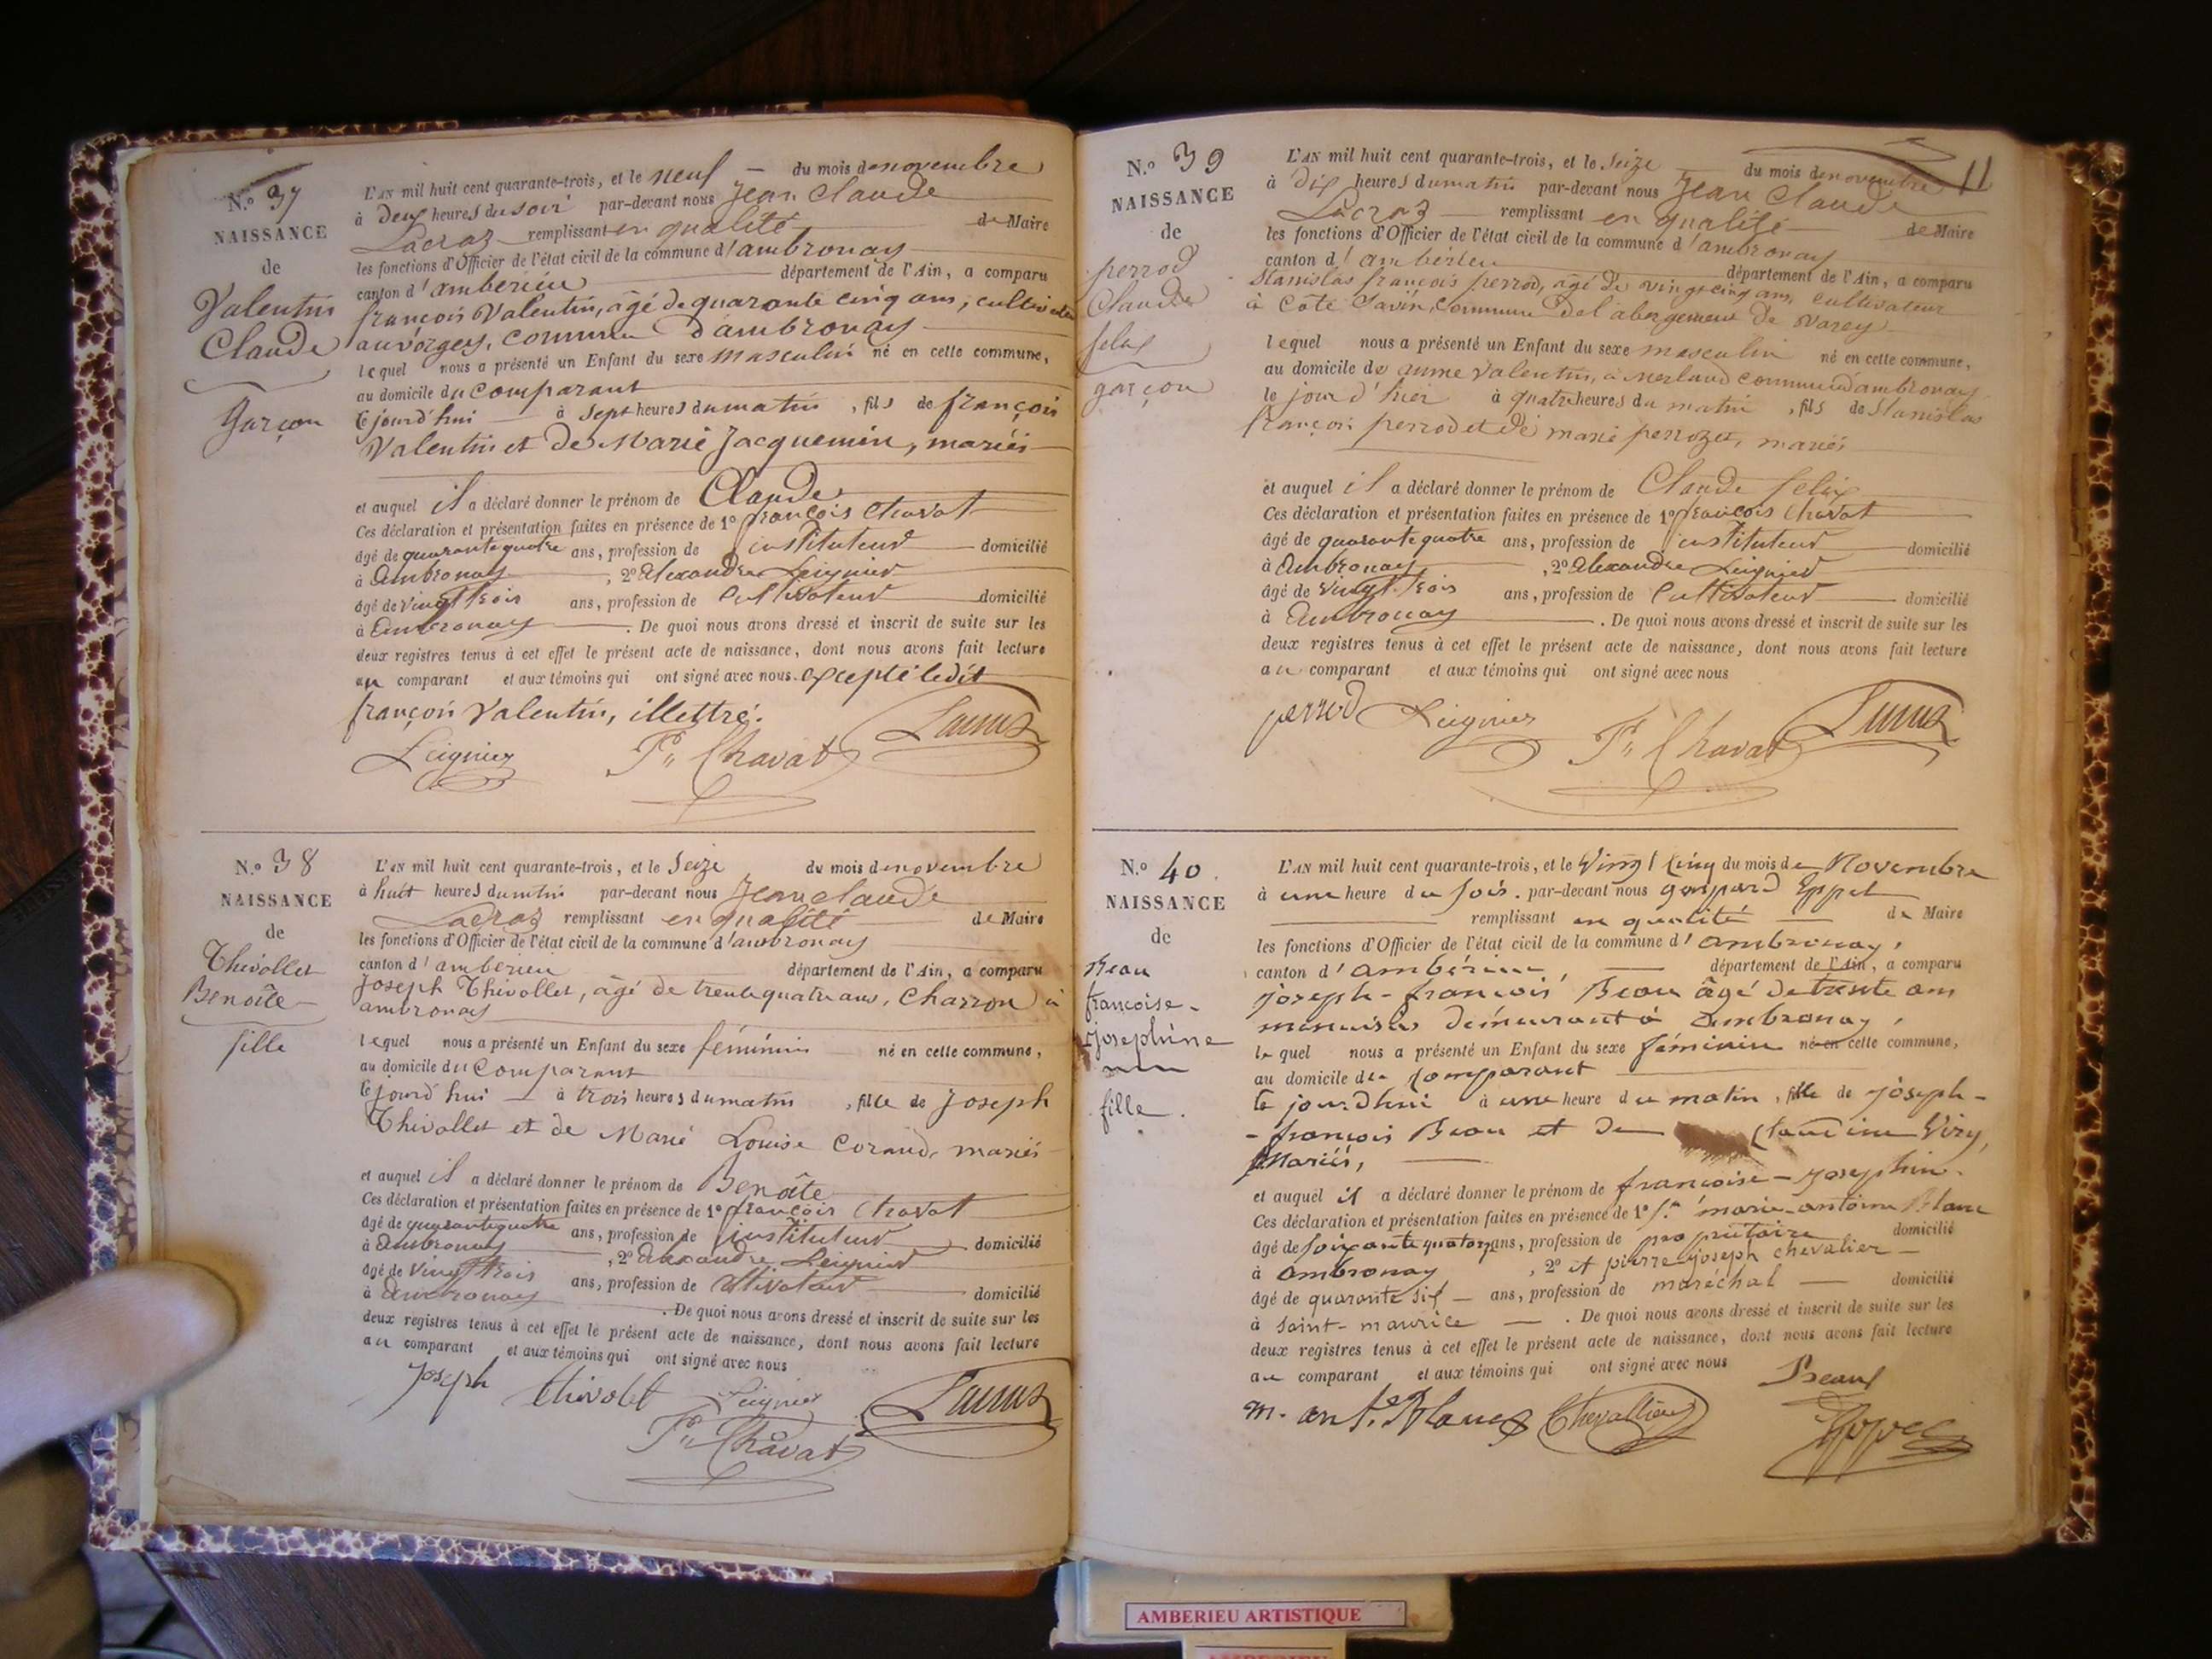 N.º 37
NAISSANCE
de
Valentin
Claude
garçon
L'AN mil huit cent quarante-trois, et le neuf du mois de novembre
à deux heures du soir par-devant nous Jean Claude
Lacroz remplissant en qualité de Maire
les fonctions d'Officier de l'état civil de la commune d'ambronay
canton d'ambérieu département de l'Ain, a comparu
françois Valentin, âgé de quarante cinq ans, cultivateur
au vorgey, commune d'ambronay
lequel nous a présenté un Enfant du sexe masculin né en cette commune,
au domicile du comparant
cejourd'hui à sept heures du matin, fils de françois
Valentin et de Marie Jacquemin, mariés
et auquel il a déclaré donner le prénom de Claude
Ces déclaration et présentation faites en présence de 1º françois Chavat
âgé de quarante quatre ans, profession de instituteur domicilié
à Ambronay, 2º Alexandre Leignier
âgé de vingt trois ans, profession de Cultivateur domicilié
à Ambronay. De quoi nous avons dressé et inscrit de suite sur les
deux registres tenus à cet effet le présent acte de naissance, dont nous avons fait lecture
au comparant et aux témoins qui ont signé avec nous excepté ledit
françois Valentin, illettré.
Leignier Fs Chavat
N.º 38
NAISSANCE
de
Thévollet
Benoîte
fille
L'AN mil huit cent quarante-trois, et le Seize du mois de novembre
à huit heures du mtin par-devant nous Jean claude
Lacroz remplissant en qualité de Maire
les fonctions d'Officier de l'état civil de la commune d'ambronay
canton d'ambérieu département de l'Ain, a comparu
Joseph Thévollet, âgé de trente quatre ans, Charron à
ambronay
lequel nous a présenté un Enfant du sexe féminin né en cette commune,
au domicile du Comparant
cejourd'hui à trois heures du matin, fille de Joseph
Thévollet et de Marie Louise Corand, mariés
et auquel il a déclaré donner le prénom de Benoîte
Ces déclaration et présentation faites en présence de 1º françois Chavat
âgé de quarante quatre ans, profession de instituteur
à Ambronay, 2º Alexandre Leignier domicilié
âgé de vingt trois ans, profession de Cultivateur
à Ambronay domicilié
. De quoi nous avons dressé et inscrit de suite sur les
deux registres tenus à cet effet le présent acte de naissance, dont nous avons fait lecture
au comparant et aux témoins qui ont signé avec nous
Joseph Thivolet Leignier
Fs Chavat
11
N.º 39
NAISSANCE
de
perrod
Claude
felix
garçon
L'AN mil huit cent quarante-trois, et le Seize du mois de novembre
à dix heures du matin par-devant nous Jean Claude
Lacroz remplissant en qualité de Maire
les fonctions d'Officier de l'état civil de la commune d'ambronay
canton d'ambérieu département de l'Ain, a comparu
Stanislas françois perrod, âgé de vingt cinq ans, cultivateur
à Côte Savin, Commune de l'abergement de Varey
lequel nous a présenté un Enfant du sexe masculin né en cette commune,
au domicile de Valentin, à Merland commune d'ambronay
le jour d'hier à quatre heures du matin, fils de Stanislas
françois perrod et de marie perrozet, mariés
et auquel il a déclaré donner le prénom de Claude felix
Ces déclaration et présentation faites en présence de 1º françois Chavat
âgé de quarante quatre ans, profession de instituteur domicilié
à Ambronay, 2º Alexandre Leignier
âgé de vingt trois ans, profession de Cultivateur domicilié
à Ambronay. De quoi nous avons dressé et inscrit de suite sur les
deux registres tenus à cet effet le présent acte de naissance, dont nous avons fait lecture
au comparant et aux témoins qui ont signé avec nous
perrod Leignier Fs Chavat
N.º 40
NAISSANCE
de
Beau
françoise-
josephine
fille.
L'AN mil huit cent quarante-trois, et le Vingt Cinq du mois de Novembre
à une heure du soir. par-devant nous gaspard Eppel
remplissant en qualité de Maire
les fonctions d'Officier de l'état civil de la commune d'ambronay,
canton d'ambérieu, département de l'Ain, a comparu
joseph-françois Beau âgé de trente ans
menuisier demeurant à ambronay,
lequel nous a présenté un Enfant du sexe féminin né en cette commune,
au domicile du Comparant
ce jourd'hui à une heure du matin, fille de joseph-
-françois Beau et de Claudine Viry,
Mariés,
et auquel il a déclaré donner le prénom de françoise-josephine
Ces déclaration et présentation faites en présence de 1º Sr marie-antoine Blanc
âgé de soixante quatorze ans, profession de propriétaire domicilié
à ambronay, 2º et pierre-joseph chevalier
âgé de quarante six ans, profession de maréchal domicilié
à saint-maurice. De quoi nous avons dressé et inscrit de suite sur les
deux registres tenus à cet effet le présent acte de naissance, dont nous avons fait lecture
au comparant et aux témoins qui ont signé avec nous
Beau
m. ant. Blanc Chevallier
AMBERIEU ARTISTIQUE